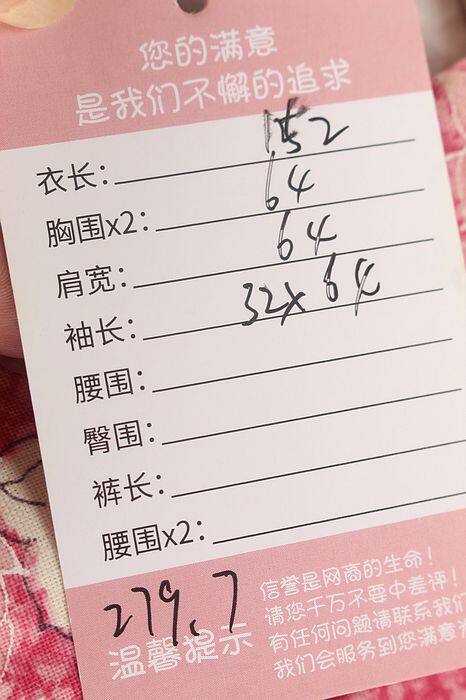 您的满意
是我们不懈的追求
衣长: 152
胸围x2: 64
肩宽: 64
袖长: 32x64
腰围:
臀围:
裤长:
腰围x2:
279.7
温馨提示
信誉是网商的生命!
请您千万不要中差评!
有任何问题请联系我们
我们会服务到您满意